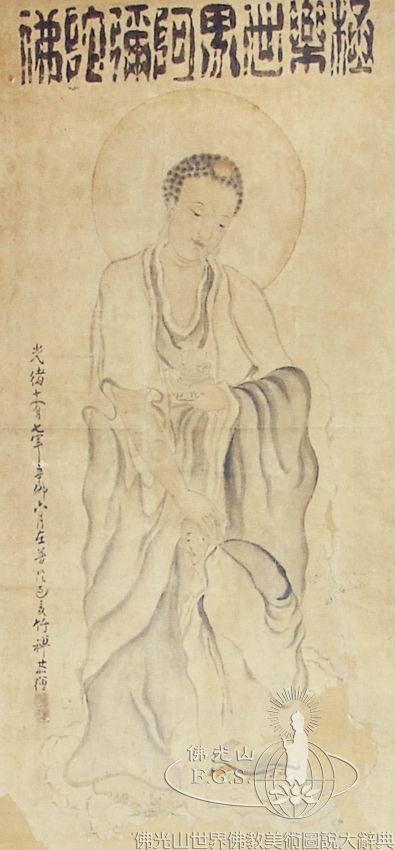 極樂世界阿彌陀佛
光緒十有七年辛卯六月在普竹禪恭繪
佛光山
F.G.S.
佛光山世界佛教美術圖說大辭典